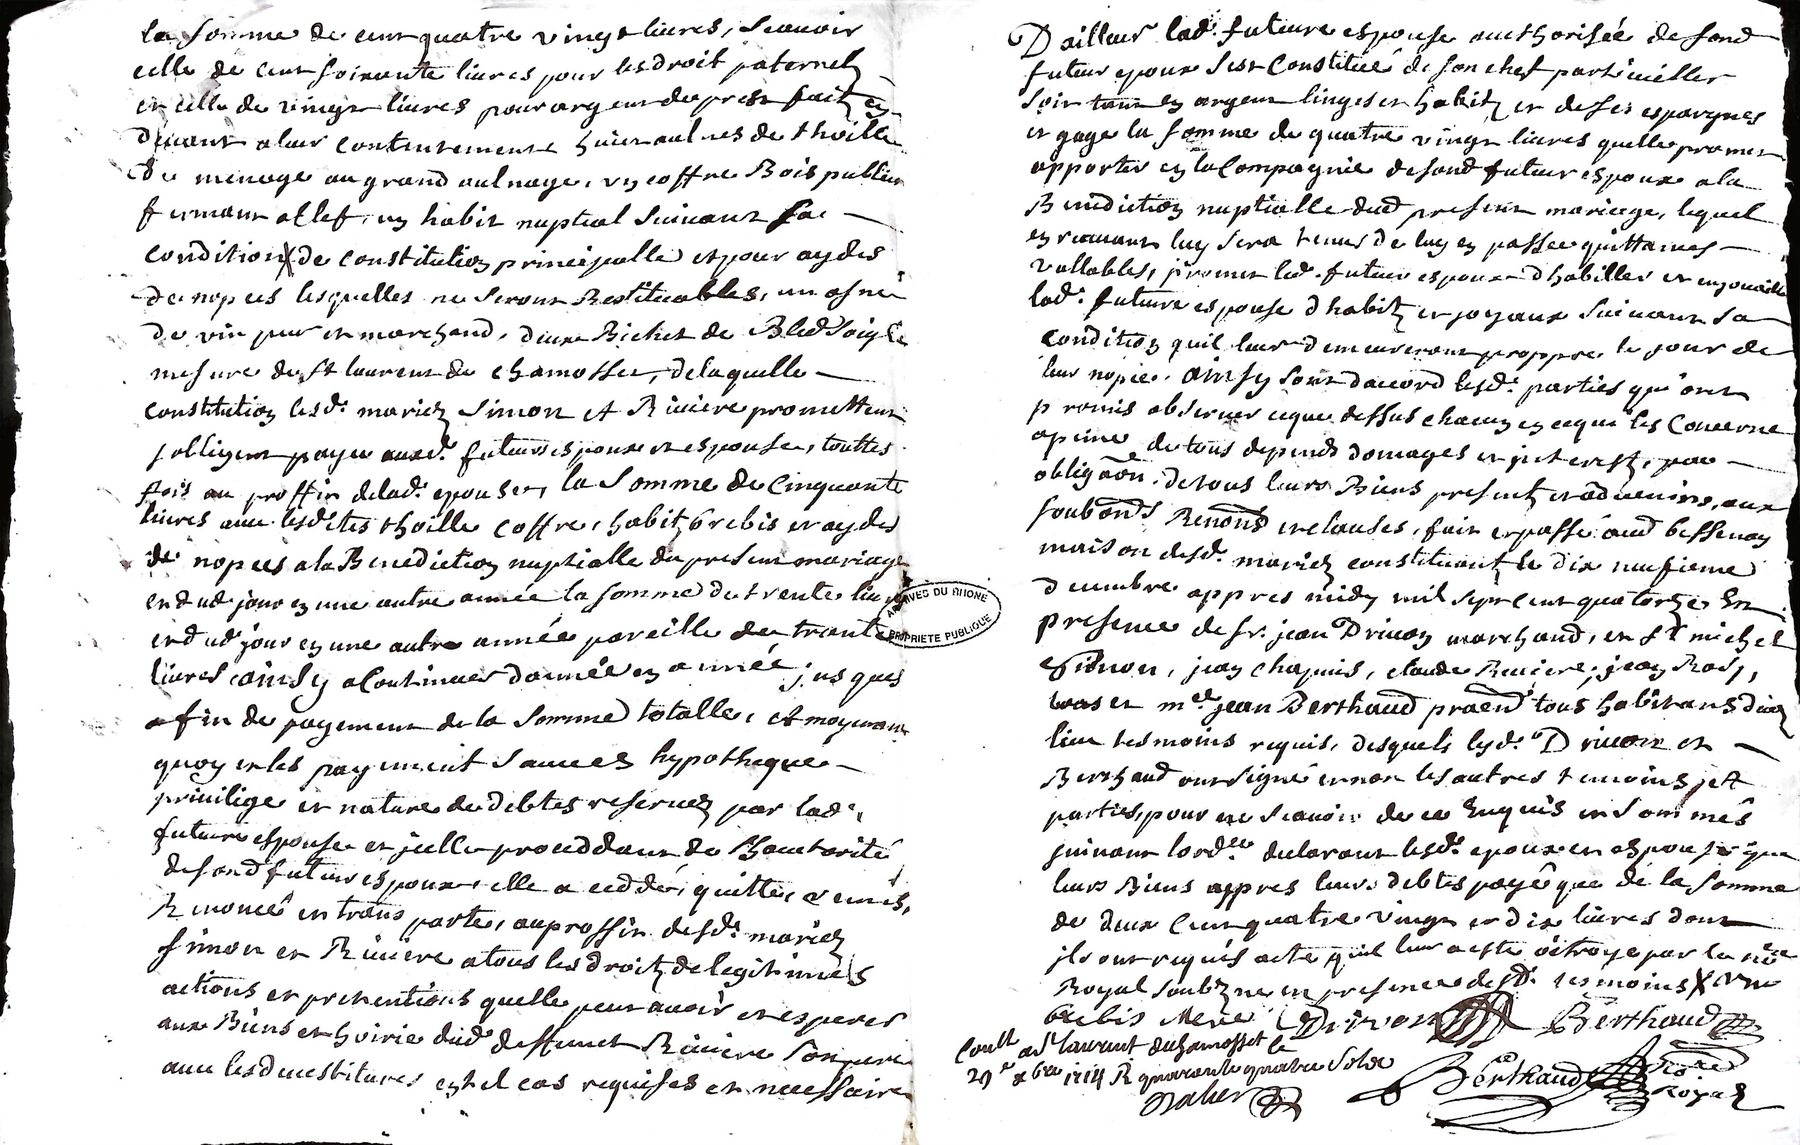 la somme de cent quatre vingt livres, scavoir
celle de cent soixante livres pour lesdroit paternelz
et celle de vingt livres pour argent de prest faitz cy
devant a leur contentement huict aulnes de thoille
de menage au grand aulnage, un coffre Bois publier
fermant a clef, un habit nuptial suivant sa
condition X de constitution principalle et pour aydes
de nopces lesquelles ne seront Restituables, un asnee
de vin pur et marchand, deux Bichet de Bled soigle
mesure de St laurent de chamosset, de laquelle
constitution lesd. mariez Simon et Riviere promettent
sobligent payer ausd. futurs espoux et espouse, touttes
fois au proffit de lad. epouse, la somme de cinquante
livres avec lesdites thoille coffre, habitz brebis et aydes
de nopces a la Benediction nuptialle du present mariage
et dud jour en une autre année la somme de trente livres
et dud jour en une autre année pareille de trente
livres ainsy a continuer d'année en année jusques
a fin de payement de la somme totalle, et moyenant
quoy et les payement sauces hypotheque
privilege et nature de debtes reservez par lad.
future espouse et icelle proceddant de Lhautorité
desond futur espoux, elle a ceddé, quitté, remis,
Renoncé et transporté, au proffit desd. mariez
Simon et Riviere a tous les droitz de legitimes
actions et prehentions quelle peut avoir et esperer
aux Biens et hoirie dud. deffunct Riviere son pere
avec les devestitures en tel cas requises et necessaire
ARCHIVES DU RHONE
PROPRIETE PUBLIQUE
D'ailleur lad. future espouse authorisée desond
futur epoux sest Constitué de son chef particulier
soit tant en argent linges et habitz et de ses espargnes
et gage la somme de quatre vingt livres quelle promet
apporter en la Compagnie desond futur espoux a la
Benediction nuptialle dud present mariage, lequel
en recevant luy sera tenus de luy en passer quittances
vallables, promet led. futur espoux d'habiller et enjoualler
lad. future espouse d'habitz et joyaux suivant sa
condition quil leur demeureront propres le jour de
leur nopce. ainsy sont daccord lesd. parties qu'ont
promis observer ceque dessus chacun en ceque les Concerne
apeine de tous depends domages et interestz, par
obligaôn de tous leurs Biens presentz et advenirs, aux
soubons Renons et clauses, fait et passé aud bessenay
maison desd. mariez constituant le dix neufieme
decembre appres midy mil sept cent quatorze En
presence de sr. jean Drivon marchand, et sr michel
Simon, jean chapuis, claude Reviere, jean Ras,
et me jean Berthaud tous habitans dud
lieu tesmoins requis, desquels lesd. Drivon et
Berthaud ont signé et non les autres temoins et
parties, pour ne scavoir de ce Enquis et sommés
suivant lordce declarant lesd. epoux et espouse que
leurs Biens appres leurs debtes payé que de la somme
de deux Cent quatre vingt et dix livres dont
ils ont requis acte quil leur a esté octroyé par le nore
Royal soubzne en presence desd. tesmoins X une
brebis Mere Drivon Berthaud
Coull a St laurant duchamosset le
29e xbre 1714 R quarante quatre Solz
Berthaud nore
Royal